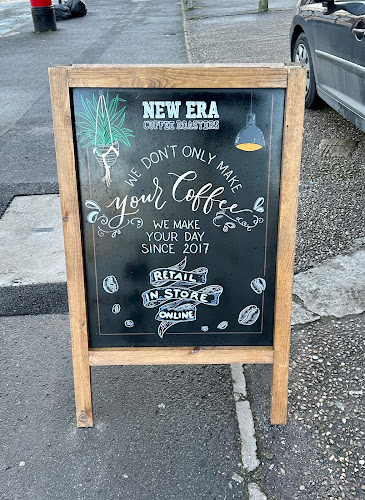 NEW ERA
COFFEE ROASTERS
WE DON'T ONLY MAKE
your Coffee
WE MAKE
YOUR DAY
SINCE 2017
RETAIL
IN STORE
ONLINE